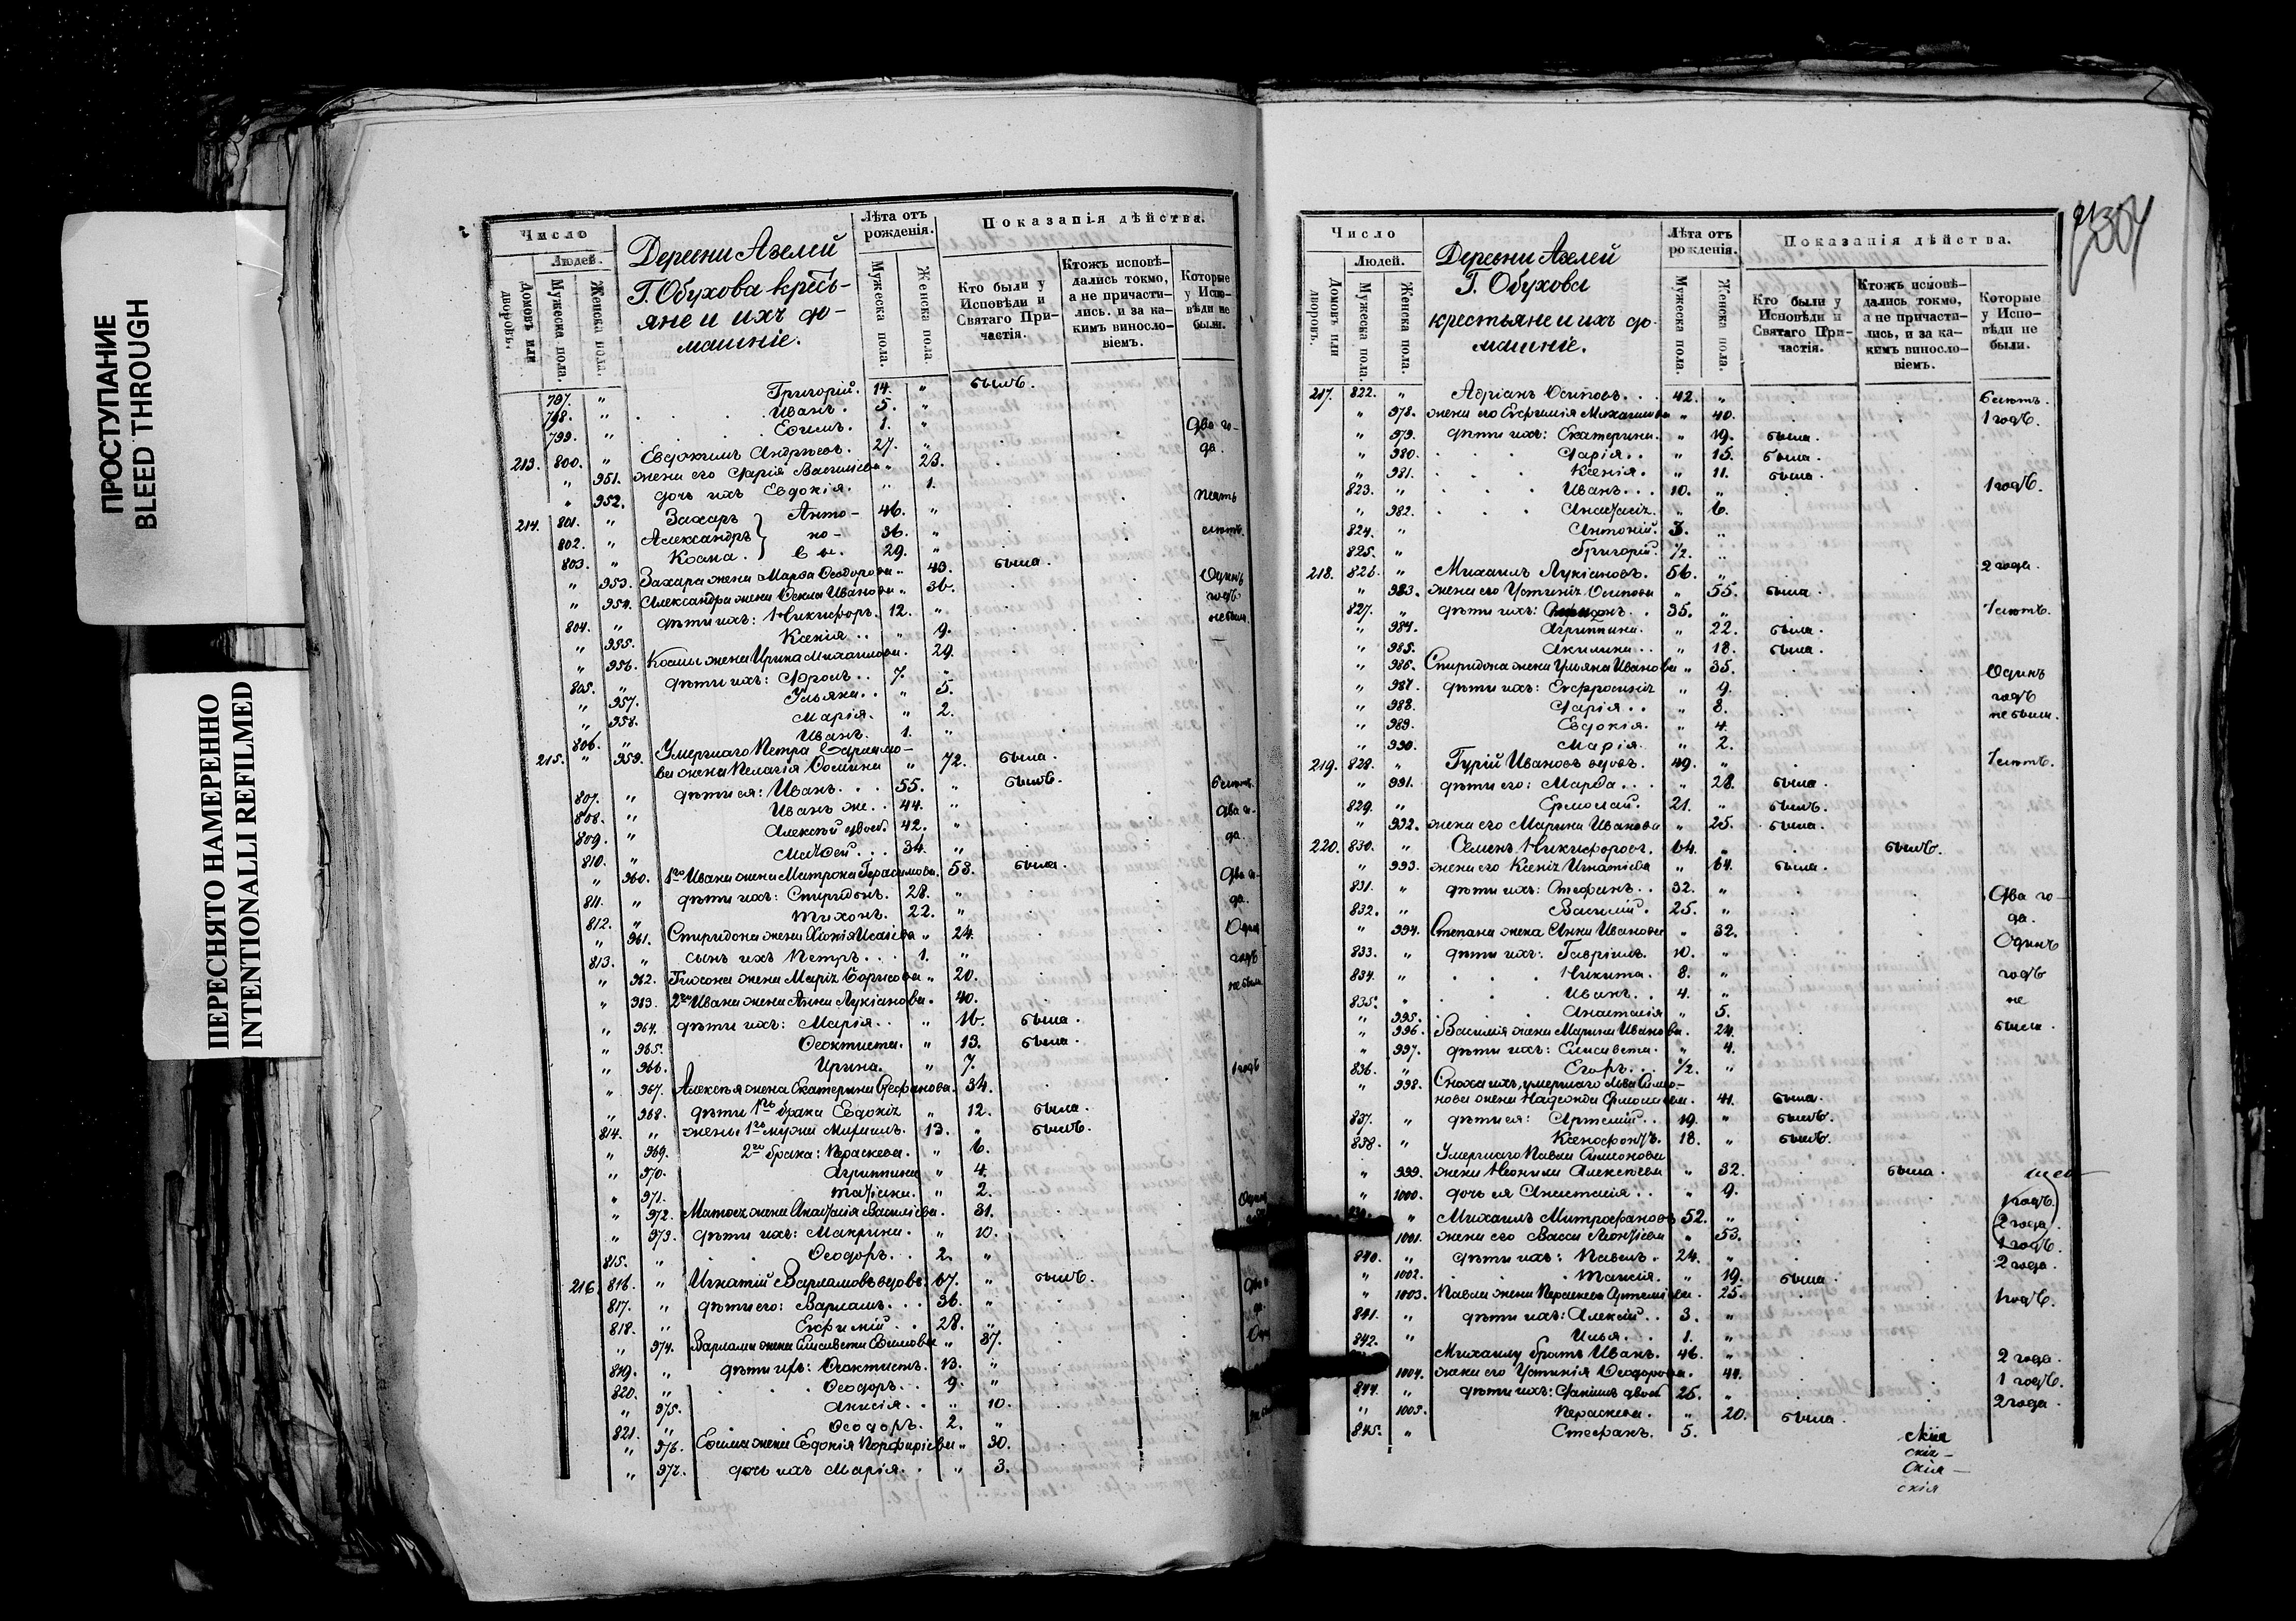 ПРОСТУПАНИЕ
BLEED THROUGH
ПЕРЕСНЯТО НАМЕРЕННО
INTENTIONALLI REFILMED
Число
Людей.
Домовъ или дворовъ.
Мужеска пола.
Женска пола.
Деревни Азелей
Г. Обухова кресть-
яне и ихъ до-
машніе.
Лѣта отъ рожденія.
Мужеска пола.
Женска пола.
Показанія дѣйства.
Кто были у Исповѣди и Святаго При- частія.
Ктожъ исповѣ- дались токмо, а не причасти- лись, и за ка- кимъ винослo- віемъ.
Которые у Испо- вѣди не были.
797. " Григорій. 14. " былъ.
798. " Иванъ. 5. "
799. " Ефимъ. 1. "
213. 800. " Евдокимъ Андреевъ. 27. " Два го-
" 951. жена его Дарія Васильева " 23. да.
" 952. дочь ихъ Евдокія. " 1.
214. 801. " Захаръ Анто- 46. " пять
802. " Александръ но- 36. " лѣтъ
803. " Косма. вы. 29. "
" 953. Захара жена Марѳа Ѳеодорова " 43. была.
" 954. Александра жена Ѳекла Иванова " 36. Одинъ
804. " дѣти ихъ: Никифоръ. 12. " годъ
" 955. Ксенія. " 9. не были
" 956. Космы жена Ирина Михаилова. 29.
805. " дѣти ихъ: Фролъ. 7. "
" 957. Ульяна. " 5.
" 958. Марія. " 2.
806. " Иванъ. 1. "
215. " 959. Умершаго Петра
ва жена Пелагія Ѳомина " 72. была.
807. " дѣти ея: Иванъ. 55. " былъ.
808. " Иванъ же. 44. " 6 лѣтъ.
809. " Алексѣй двоеб. 42. " Два го-
810. " Матѳей. 34. " да.
" 960. 1го Ивана жена Матрона Герасимова. 53. была.
811. " дѣти ихъ: Спиридонъ. 28. " Два го-
812. " Тихонъ. 22. " да.
" 961. Спиридона жена Хіонія Исаіева " 24.
813. " сынъ ихъ Петръ. 1. " Одинъ
" 962. Тихона жена Марія Борисова " 20. годъ
" 963. 2го Ивана жена Анна Лукіанова. 40. не были
" 964. дѣти ихъ: Марія. " 16. была.
" 965. Ѳеоктиста. " 13. была.
" 966. Ирина. " 7.
" 967. Алексѣя жена Екатерина Стефанова. 34. 1 годъ
" 968. дѣти 1го брака Евдокія " 12. была.
814. " жены 1го мужа 13. " былъ.
" 969. 2го брака: Параскева. " 6.
" 970. Агриппина " 4.
" 971. Татіана. " 2.
" 972. Матѳея жена Анастасія Васильева. 31.
" 973. дѣти ихъ: Макрина. " 10.
815. " Ѳеодоръ. 2. "
216. 816. " Игнатій Варламовъ вдовъ. 67. " былъ.
817. " дѣти его: Варламъ. 36. "
818. " Евфимій. 28. "
" 974. Варлама жена Елисавета Ефимова " 37.
819. " дѣти ихъ: Ѳеоктистъ. 13. "
820. " Ѳеодоръ. 9. "
" 975. Анисія. " 10.
821. " Ѳеодоръ. 2. "
" 976. Ефима жена Евдокія Порфиріева " 30.
" 977. дочь ихъ Марія. " 3.
304
Число
Людей.
Домовъ или дворовъ.
Мужеска пола.
Женска пола.
Деревни Азелей
Г. Обухова
крестьяне и ихъ до-
машніе.
Лѣта отъ рожденія.
Мужеска пола.
Женска пола.
Показанія дѣйства.
Кто были у Исповѣди и Святаго При- частія.
Ктожъ исповѣ- дались токмо, а не причасти- лись, и за ка- кимъ винослo- віемъ.
Которые у Испо- вѣди не были.
217. 822. " Адріанъ Осиповъ. 42. " 6 лѣтъ.
" 978. жена его Евфимія Михаилова " 40. 1 годъ.
" 979. дѣти ихъ: Екатерина. " 19. была.
" 980. Дарія. " 15. была.
" 981. Ксенія. " 11. была.
823. " Иванъ. 10. " 1 годъ.
" 982. Анастасія. " 6.
824. " Антоній. 3. "
825. " Григорій. 1/2. "
218. 826. " Михаилъ Лукіановъ. 56. " 2 года.
" 983. жена его Устинія Осипова " 55. была.
827. " дѣти ихъ: 35. " 7 лѣтъ.
" 984. Агриппина. " 22. была.
" 985. Акилина. " 18. была.
" 986. Спиридона жена Ульяна Иванова " 35.
" 987. дѣти ихъ: Евфросинія " 9. Одинъ
" 988. Дарія. " 8. годъ
" 989. Евдокія. " 4. не были.
" 990. Марія. " 2.
219. 828. " Гурій Ивановъ вдовъ. 49. " 7 лѣтъ.
" 991. дѣти его: Марѳа. " 28. была.
829. " Ермолай. 21. " былъ.
" 992. жена его Марина Иванова " 25. была.
220. 830. " Семенъ Никифоровъ. 64. " былъ.
" 993. жена его Ксенія Игнатіева " 64. была.
831. " дѣти ихъ: Стефанъ. 32. " Два го-
832. " Василій. 25. " да.
" 994. Степана жена Анна Иванова " 32.
833. " дѣти ихъ: Гавріилъ. 10. " Одинъ
834. " Никита. 8. " годъ
835. " Иванъ. 4. " не
" 995. Анастасія " 5. были.
" 996. Василія жена Марина Иванова. 24.
" 997. дѣти ихъ: Елисавета. " 4.
836. " Егоръ. 1/2. "
" 998. Сноха ихъ, умершаго Льва Симо-
нова жена Надежда Ермолаева. 41. была.
837. " дѣти ея: Артемій. 19. " былъ.
838. " Ксенофонтъ. 18. " былъ.
Умершаго Павла Симонова
" 999. жена Неонила Алексѣева " 32. была.
" 1000. дочь ея Анастасія. " 9. 1 годъ.
" Михаилъ Митрофановъ 52. " 2 года.
1001. жена его Васса Леонтіева " 53. 1 годъ.
840. " дѣти ихъ: Павелъ. 24. " 2 года.
" 1002. Таисія. " 19. была.
" 1003. Павла жена Параскева Артемьева. 25. 1 годъ.
841. " дѣти ихъ: Алексій. 3. "
842. " Илья. 1. "
Михаилу братъ Иванъ. 46. " 2 года.
1004. жена его Устинія Ѳеодорова. 44. 1 годъ.
844. " дѣти ихъ: Даніилъ двоеб. 25. " 2 года.
" 1005. Параскева. " 20. была.
845. " Стефанъ. 5.
скія
скія-
скія-
скія